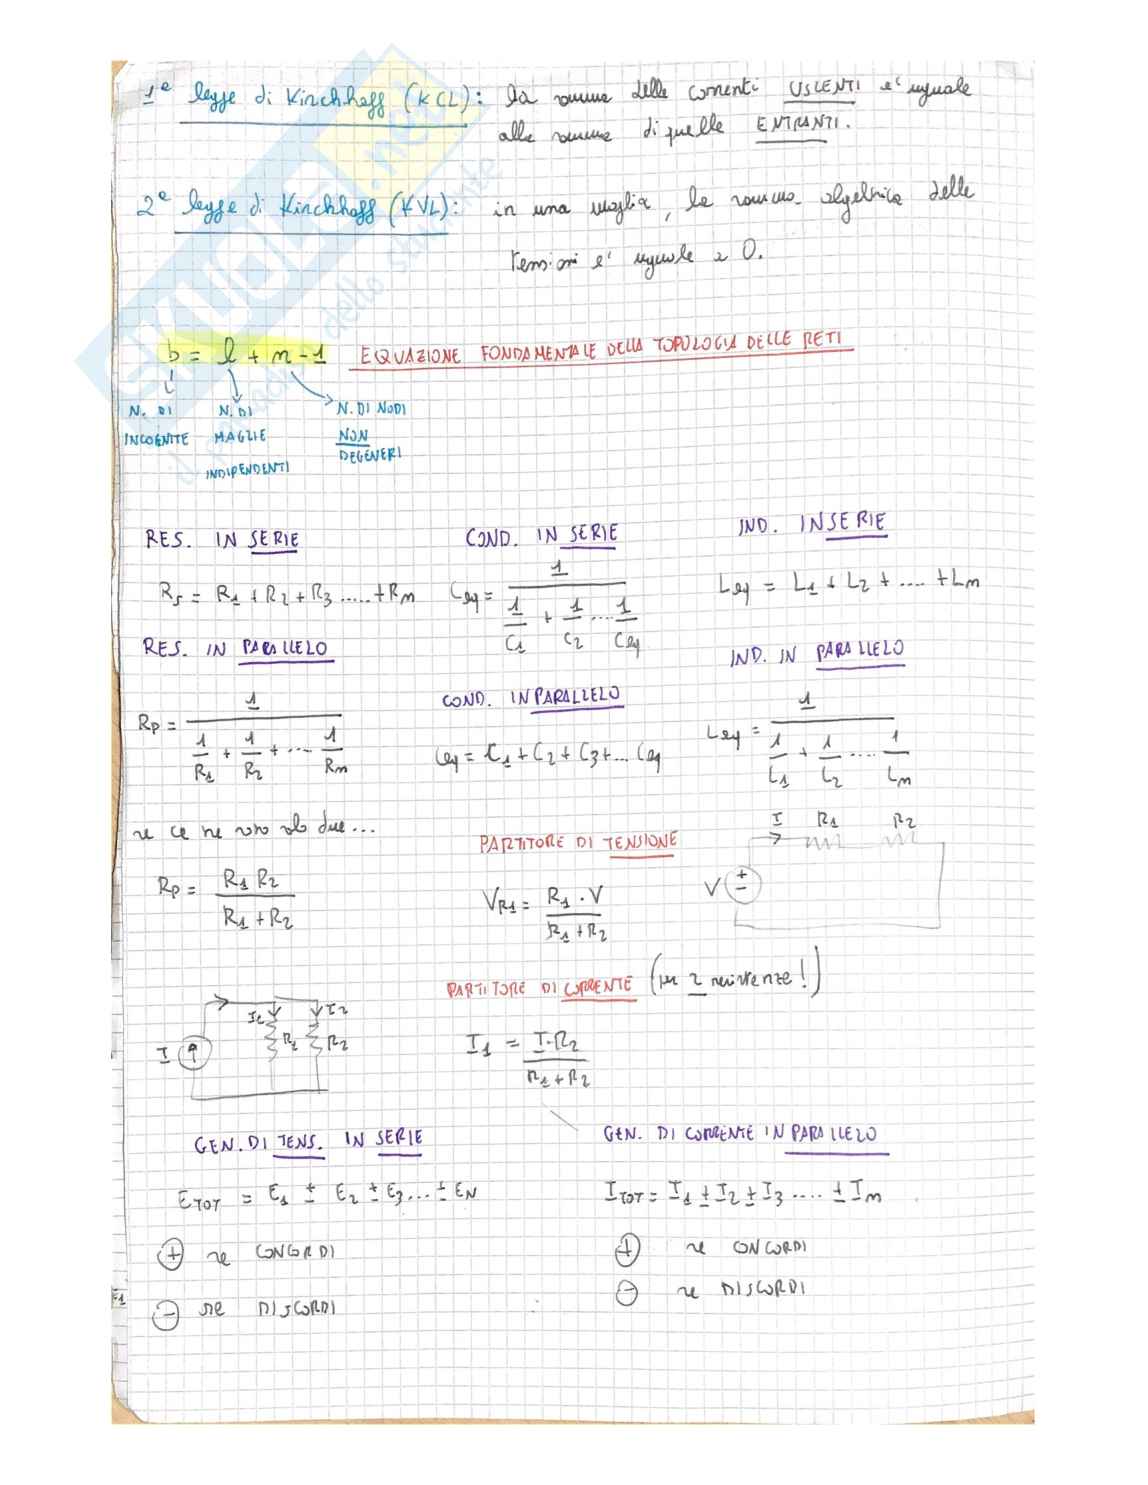 1ª legge di Kirchhoff (KCL): la somma delle correnti USCENTI e' uguale
alla somma di quelle ENTRANTI.
2ª legge di Kirchhoff (KVL): in una maglia, la somma algebrica delle
tensioni e' uguale a 0.
b = l + n - 1 EQUAZIONE FONDAMENTALE DELLA TOPOLOGIA DELLE RETI
N. DI INCOGNITE
N. DI MAGLIE INDIPENDENTI
N. DI NODI NON DEGENERI
RES. IN SERIE
Rs = R1 + R2 + R3 ..... + Rm
COND. IN SERIE
Ceq = 1 / (1/C1 + 1/C2 .... 1/Ceq)
IND. IN SERIE
Leq = L1 + L2 + .... + Lm
RES. IN PARALLELO
Rp = 1 / (1/R1 + 1/R2 + .... 1/Rm)
COND. IN PARALLELO
Ceq = C1 + C2 + C3 + ... Ceq
IND. IN PARALLELO
Leq = 1 / (1/L1 + 1/L2 .... 1/Lm)
se ce ne sono solo due...
Rp = R1 R2 / (R1 + R2)
PARTITORE DI TENSIONE
VR1 = R1 . V / (R1 + R2)
I R1 R2
V + -
PARTITORE DI CORRENTE (per 2 resistenze!)
I1 = I.R2 / (R1 + R2)
I I1 I2 R1 R2
GEN. DI TENS. IN SERIE
ETOT = E1 ± E2 ± E3 ... ± EN
+ se CONCORDI
- se DISCORDI
GEN. DI CORRENTE IN PARALLELO
ITOT = I1 ± I2 ± I3 .... ± Im
+ se CONCORDI
- se DISCORDI
SKUOLA.net
il paradiso dello studente